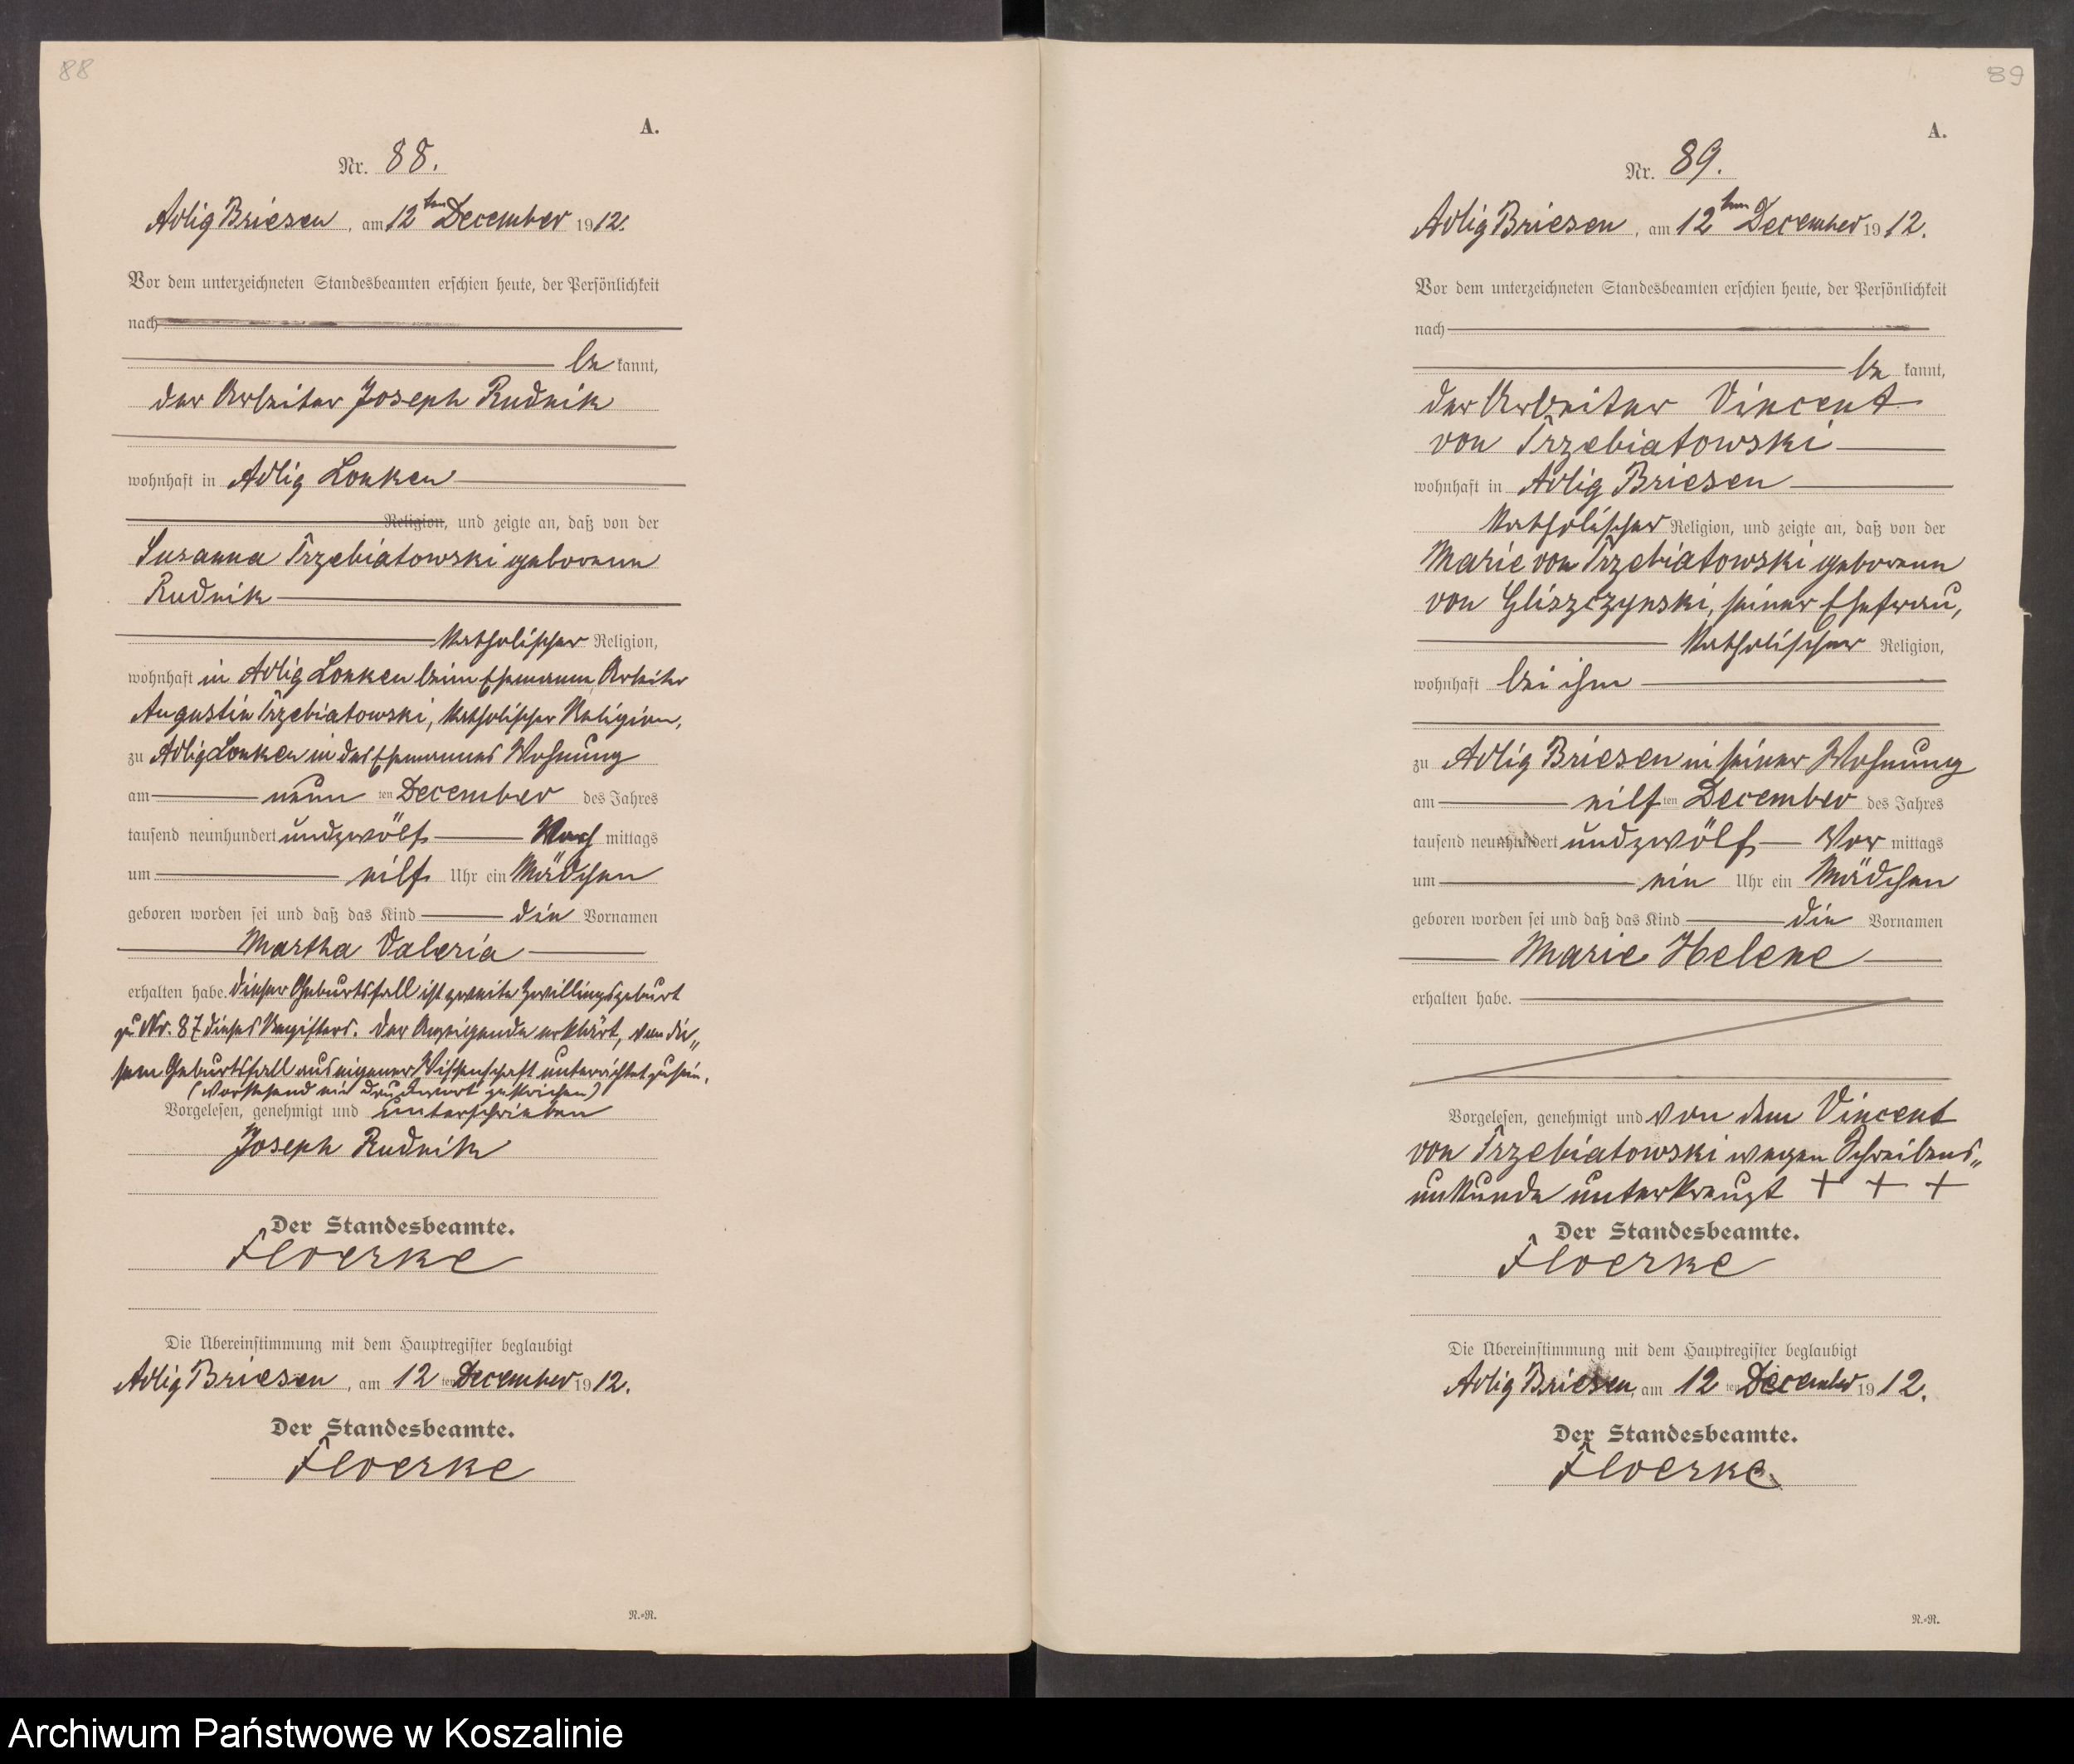 88
A.
Nr. 88.
Adlig Briesen, am 12ten December 1912.
Vor dem unterzeichneten Standesbeamten erschien heute, der Persönlichkeit
nach
be kannt,
der Arbeiter Joseph Rudnik
wohnhaft in Adlig Lonken
Religion, und zeigte an, daß von der
Susanna Trzebiatowski geborene
Rudnik
katholischer Religion,
wohnhaft in Adlig Lonken beim Ehemanne, Arbeiter
Augustin Trzebiatowski, katholischer Religion,
zu Adlig Lonken in des Ehemannes Wohnung
am neun ten December des Jahres
tausend neunhundert undzwölf Nach mittags
um eilf Uhr ein Mädchen
geboren worden sei und daß das Kind die Vornamen
Martha Valeria
erhalten habe. Dieser Geburtsfall ist zweite Zwillingsgeburt
zu Nr. 87 dieses Registers. Der Anzeigende erklärt, von die„
sem Geburtsfall aus eigener Wissenschaft unterrichtet zu sein.
(Vorstehend ein Druckwort gestrichen)
Vorgelesen, genehmigt und unterschrieben
Joseph Rudnik
Der Standesbeamte.
Floerke
Die Übereinstimmung mit dem Hauptregister beglaubigt
Adlig Briesen, am 12 ten December 1912.
Der Standesbeamte.
Floerke
N.=N.
89
A.
Nr. 89.
Adlig Briesen, am 12ten December 1912.
Vor dem unterzeichneten Standesbeamten erschien heute, der Persönlichkeit
nach
be kannt,
der Arbeiter Vincent
von Trzebiatowski
wohnhaft in Adlig Briesen
katholischer Religion, und zeigte an, daß von der
Marie von Trzebiatowski geborene
von Gliszczynski, seiner Ehefrau,
katholischer Religion,
wohnhaft bei ihm
zu Adlig Briesen in seiner Wohnung
am eilf ten December des Jahres
tausend neunhundert undzwölf Vor mittags
um ein Uhr ein Mädchen
geboren worden sei und daß das Kind die Vornamen
Marie Helene
erhalten habe.
Vorgelesen, genehmigt und von dem Vincent
von Trzebiatowski wegen Schreibens„
unkunde unterkreuzt + + +
Der Standesbeamte.
Floerke
Die Übereinstimmung mit dem Hauptregister beglaubigt
Adlig Briesen, am 12 ten December 1912.
Der Standesbeamte.
Floerke
N.=N.
Archiwum Państwowe w Koszalinie